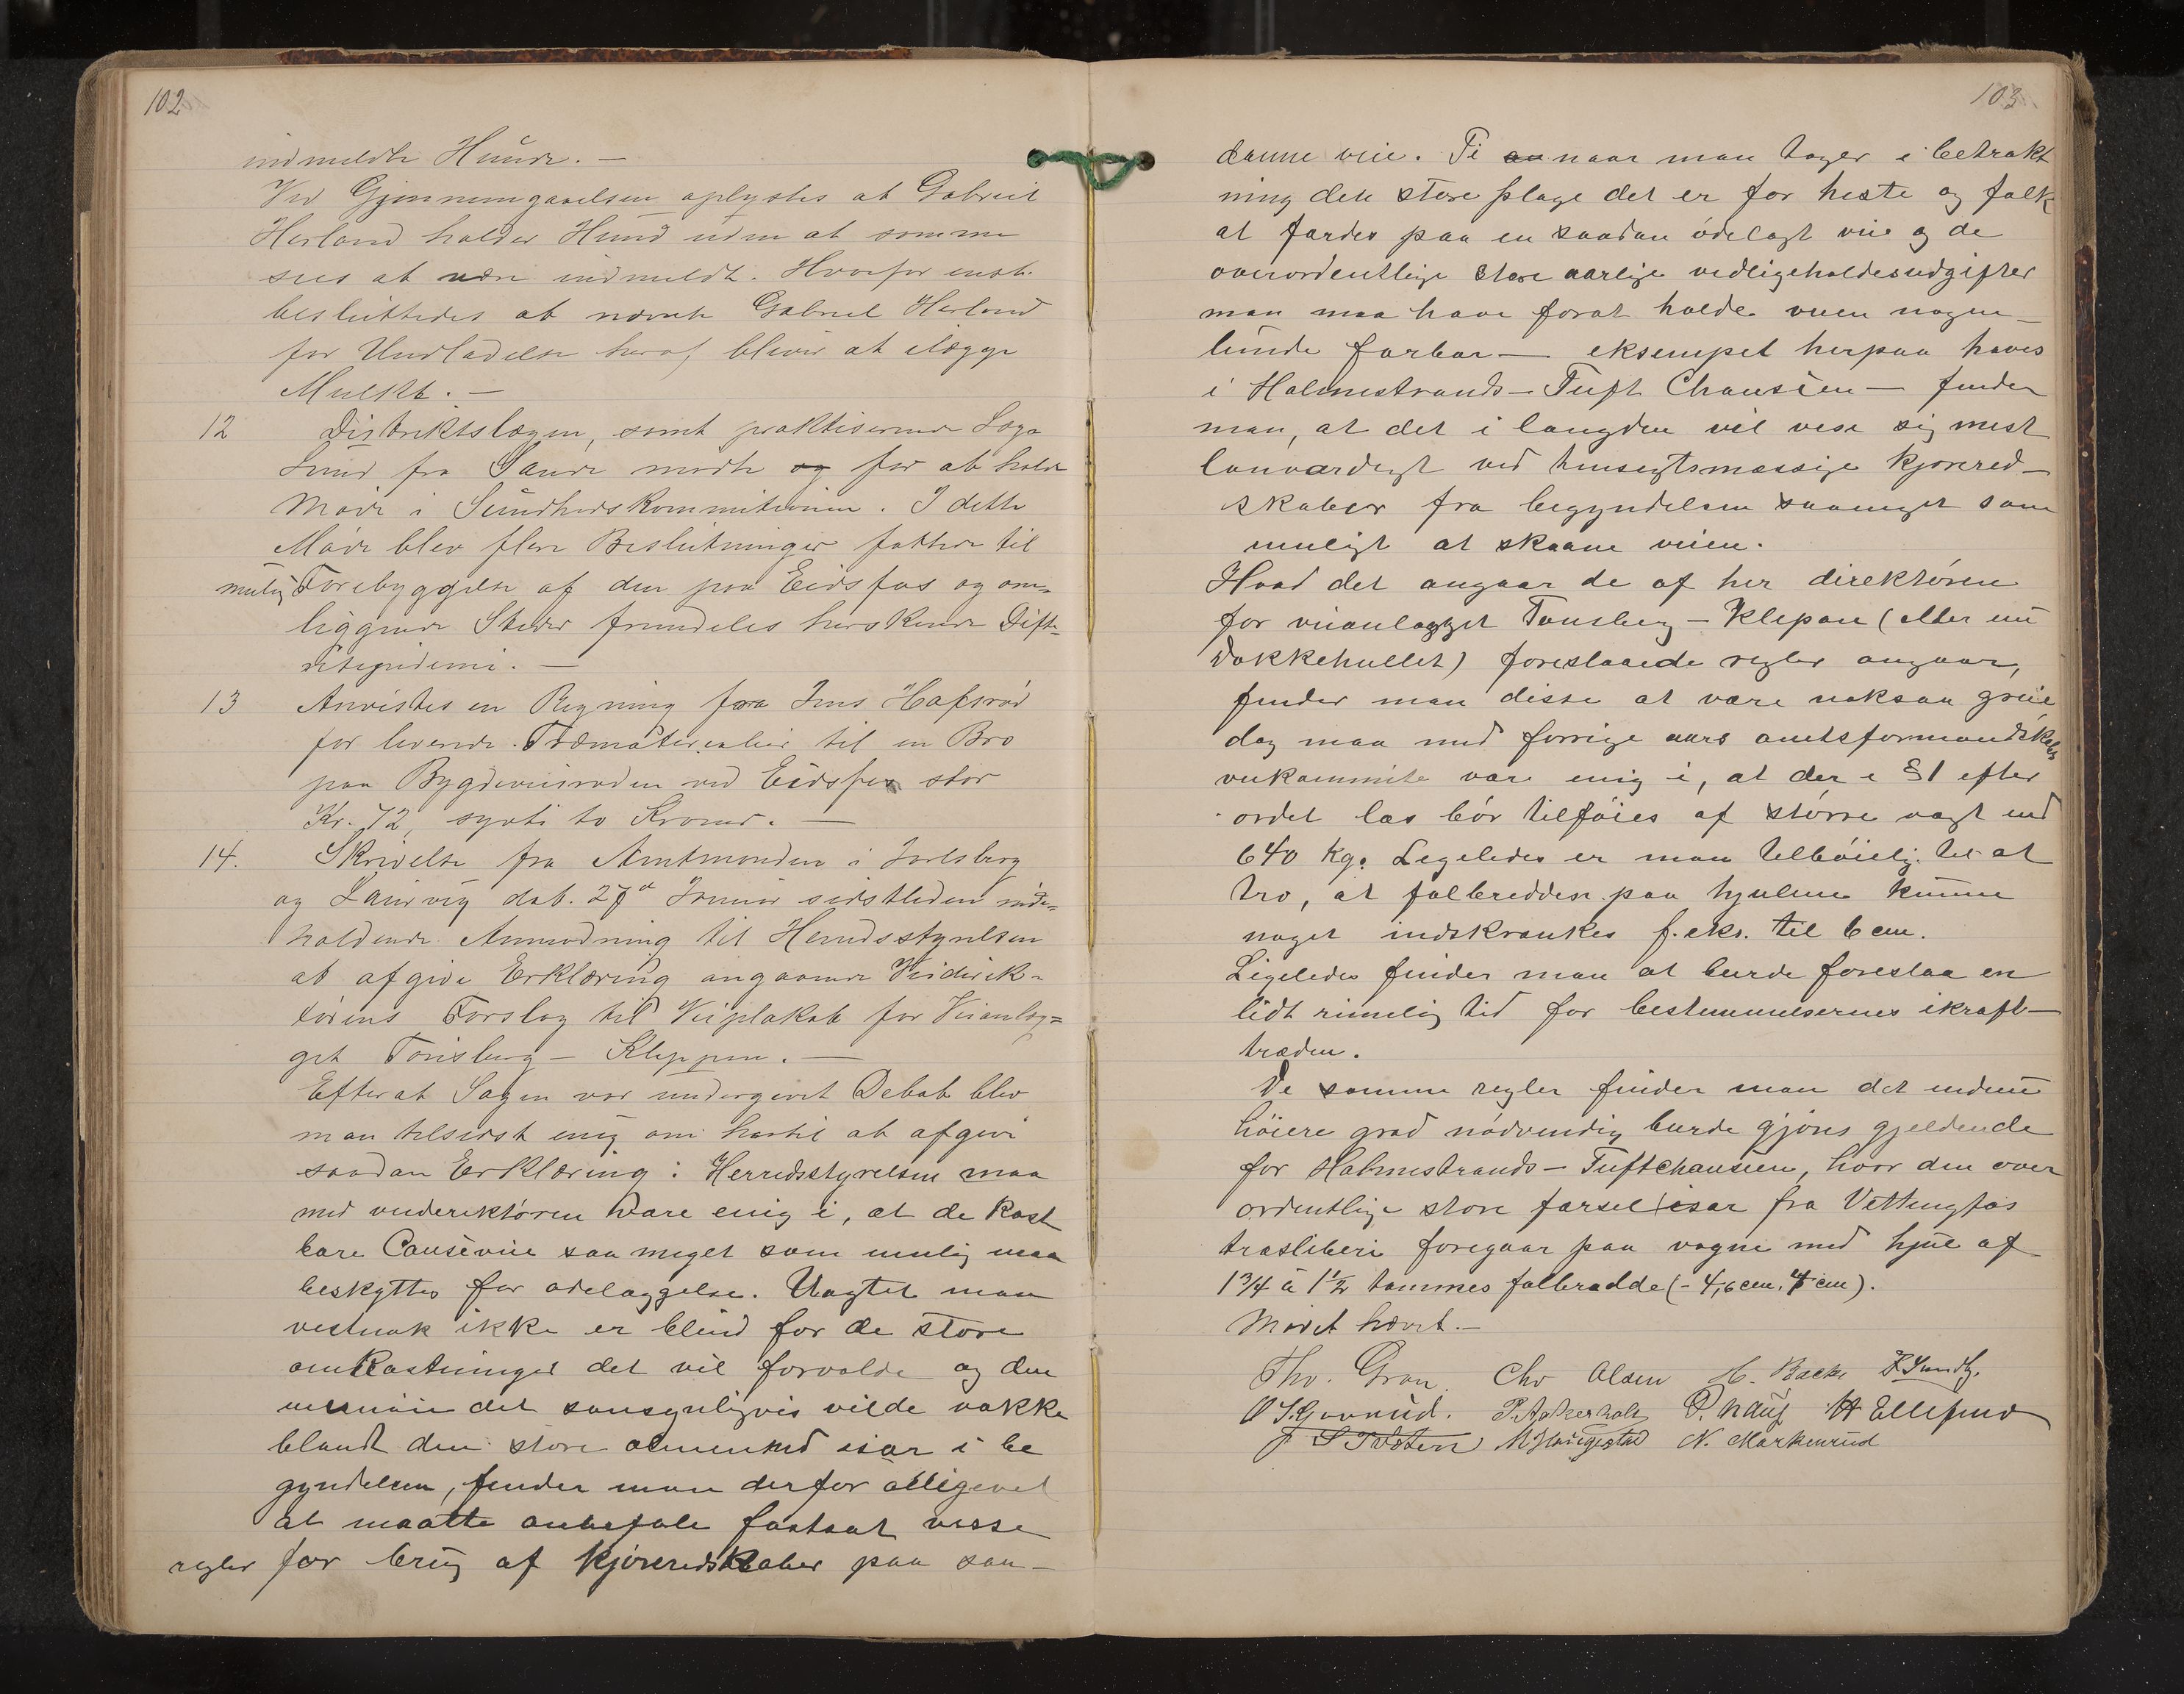 102
indmeldte Hunde. —
Ved Gjennemgaaelsen oplystes at Gabriel
Herland holder Hund uden at samme
sees at være indmeldt. Hvorfor enst.
besluttedes at nævnte Gabriel Herland
for Undladelse heraf bliver at ilægge
Mulkt. —
12 Distriktslægen, samt praktiserende Læge
Lund fra Sande mødte og for at holde
Møde i Sundhedskommitionen. I dette
Møde blev flere Beslutninger fattede til
mulig Forebyggelse af den paa Eidsfos og om=
liggende Steder fremdeles herskende Difte=
ritepidemi. —
13 Anvistes en Regning fra Jens Hafsrød
for leverede Træmaterialier til en Bro
paa Bygdeveisroden ved Eidsfos stor
Kr. 72, sytti to Kroner. —
14. Skrivelse fra Amtmanden i Jarlsberg
og Laurvig dat. 27de Januar sidstleden inde=
holdende Anmodning til Herredsstyrelsen
at afgive Erklæring angaaende Veidirek=
tørens Forslag til Veiplakat for Veianlæg=
get Tønsberg — Kleppen. —
Efterat Sagen var undergivet Debat blev
man tilsidst enig om hertil at afgive
saadan Erklæring: Herredsstyrelsen maa
med veidirektøren være enig i, at de kost
bare Causéveie saa meget som mulig maa
beskyttes for ødelæggelse. Uagtet man
vistnok ikke er blind for de store
omkostninger det vil forvolde og den
uvenneie det sansynligvis vilde vække
blandt den store almenhed især i be
gyndelsen, finder man derfor alligevel
at maatte anbefale fastsat visse
regler for brug af kjøreredskaber paa saa—
103
danne veie. Ti naar man tager i betrakt
ning den store plage det er for heste og folk
at færdes paa en saadan ødelagt vei og de
overordentlige store aarlige vedligeholdesudgifter
man maa have forat holde veien nogen—
lunde farbar — eksempel herpaa haves
i Holmestrands—Tuft Chauséen — finder
man, at det i længden vil vise sig mest
lønværdigt ved hensigtsmæssige kjørered—
skaber fra begyndelsen saameget som
muligt at skaane veien.
Hvad det angaar de af her direktøren
for veianlægget Tønsberg — Klepan (eller nu
Dokkehullet) foreslaaede regler angaar,
finder man disse at være noksaa greie
dog maa med forrige aars amtsformandskabs
veikommite være enig i, at der i § 1 efter
ordet læs bør tilføies af større vægt end
640 kg. Legeledes er man tilbøielig til at
tro, at falbredden paa hjulene kunne
noget indskrænkes f.eks. til 6 cm.
Ligeledes finder man at burde foreslaa en
lidt rimelig tid for bestemmelsernes ikraft—
træden.
De samme regler finder man det endnu
høiere grad nødvendig burde gjøres gjeldende
for Holmestrands—Tuftchauséen, hvor den over
ordentlige store færsel især fra Vittingfos
træsliberi foregaar paa vogne med hjul af
1 3/4 à 1 1/2 tommes falbredde (- 4,6 cm, 4 cm).
Mødet hævet. —
Tho. Gran Chr Olsen H. Backe K Sundby.
P. Aakerholt P. Nauf H Ellefsrud
M Haugestad N. Markerud